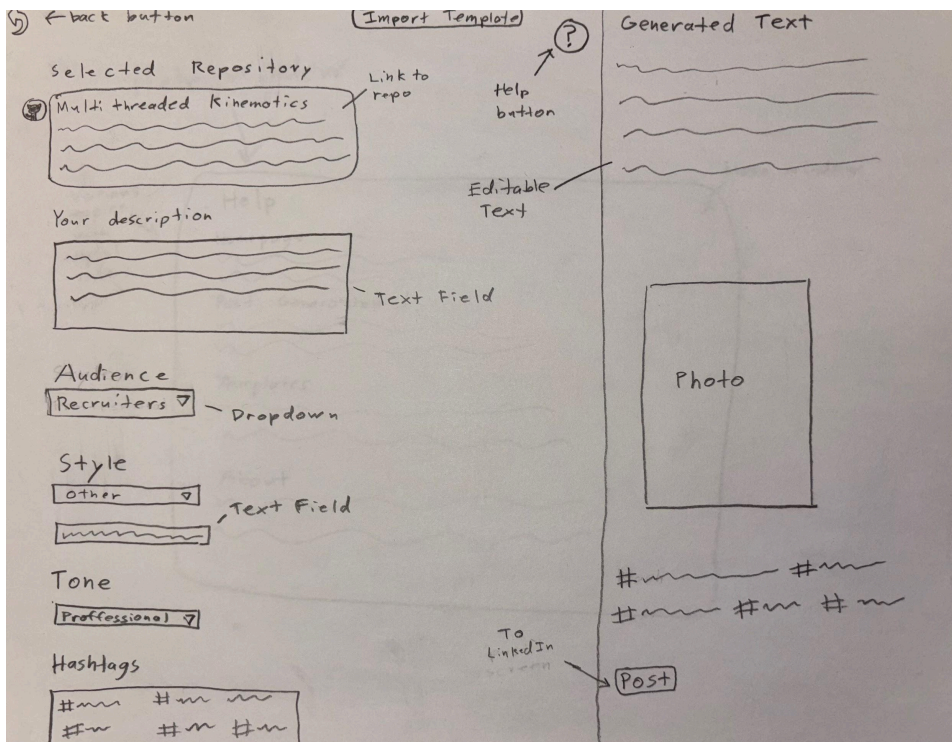 ← back button
Import Template
?
Help
button
Selected Repository
Multi threaded Kinematics
Link to
repo
Your description
Text Field
Audience
Recruiters
Dropdown
Style
Other
Text Field
Tone
Proffessional
Hashtags
# # #
# # #
Generated Text
Editable
Text
Photo
# #
# # #
To
LinkedIn
screen
Post
Help
Templates
About